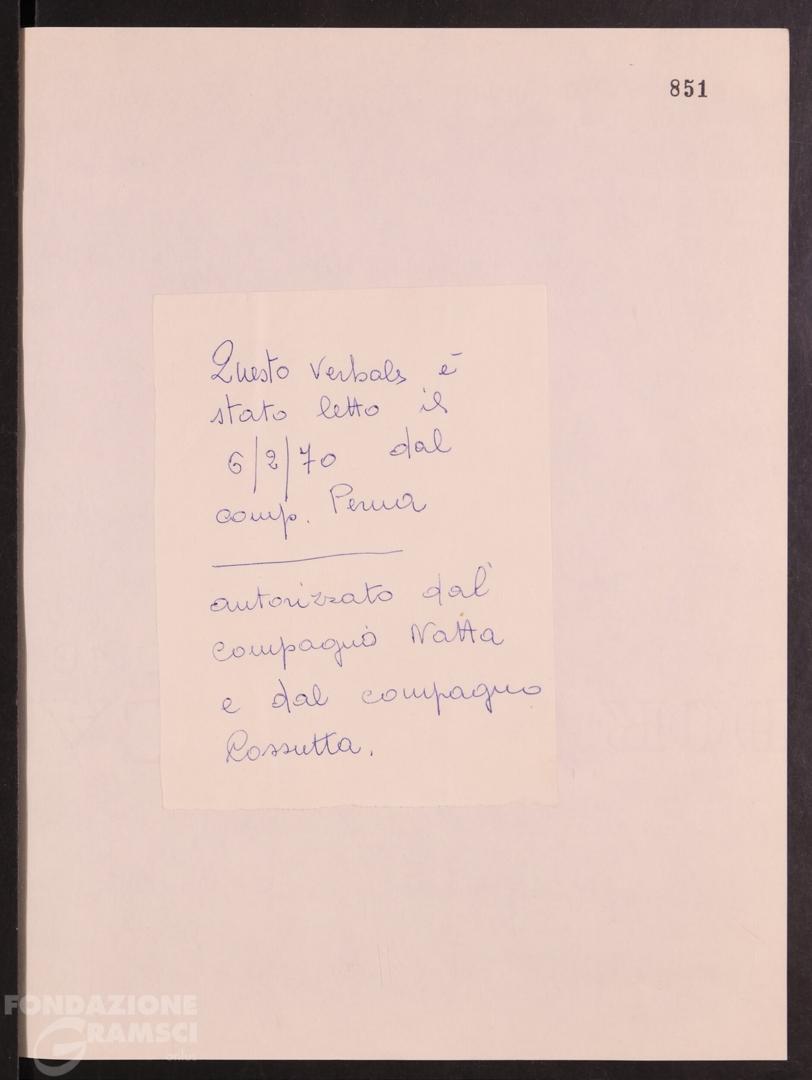 851
Questo verbale è
stato letto il
6/2/70 dal
comp. Perna
autorizzato dal
compagno Natta
e dal compagno
Cossutta.
FONDAZIONE
GRAMSCI
onlus